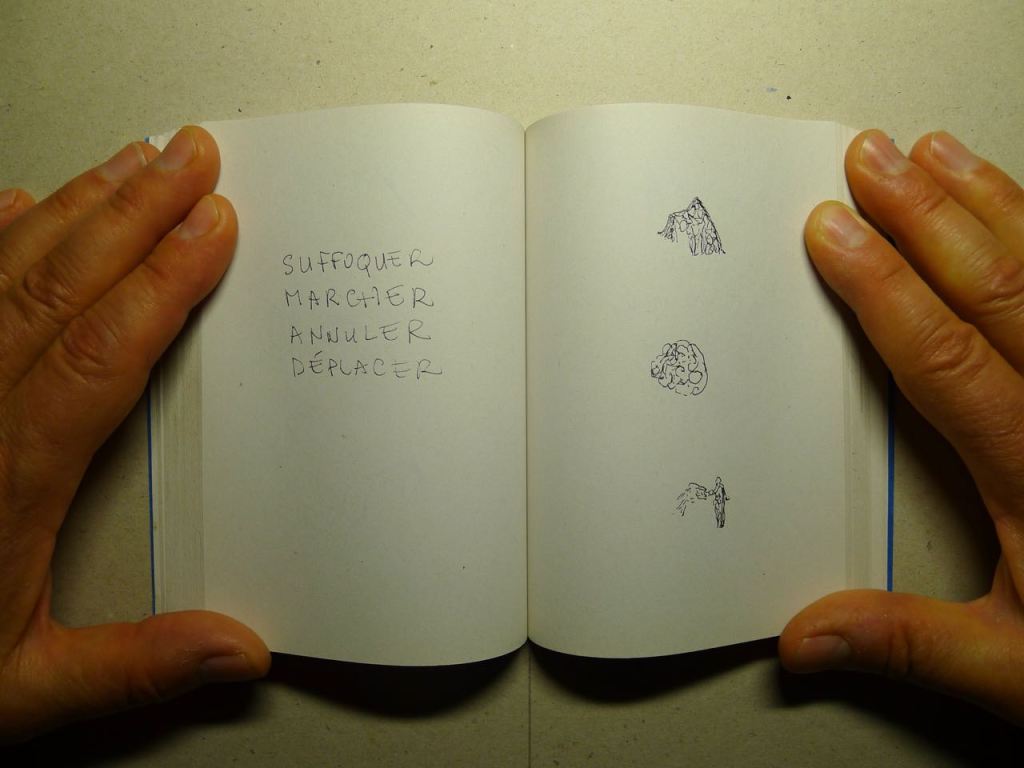 SUFFOQUER
MARCHER
ANNULER
DÉPLACER